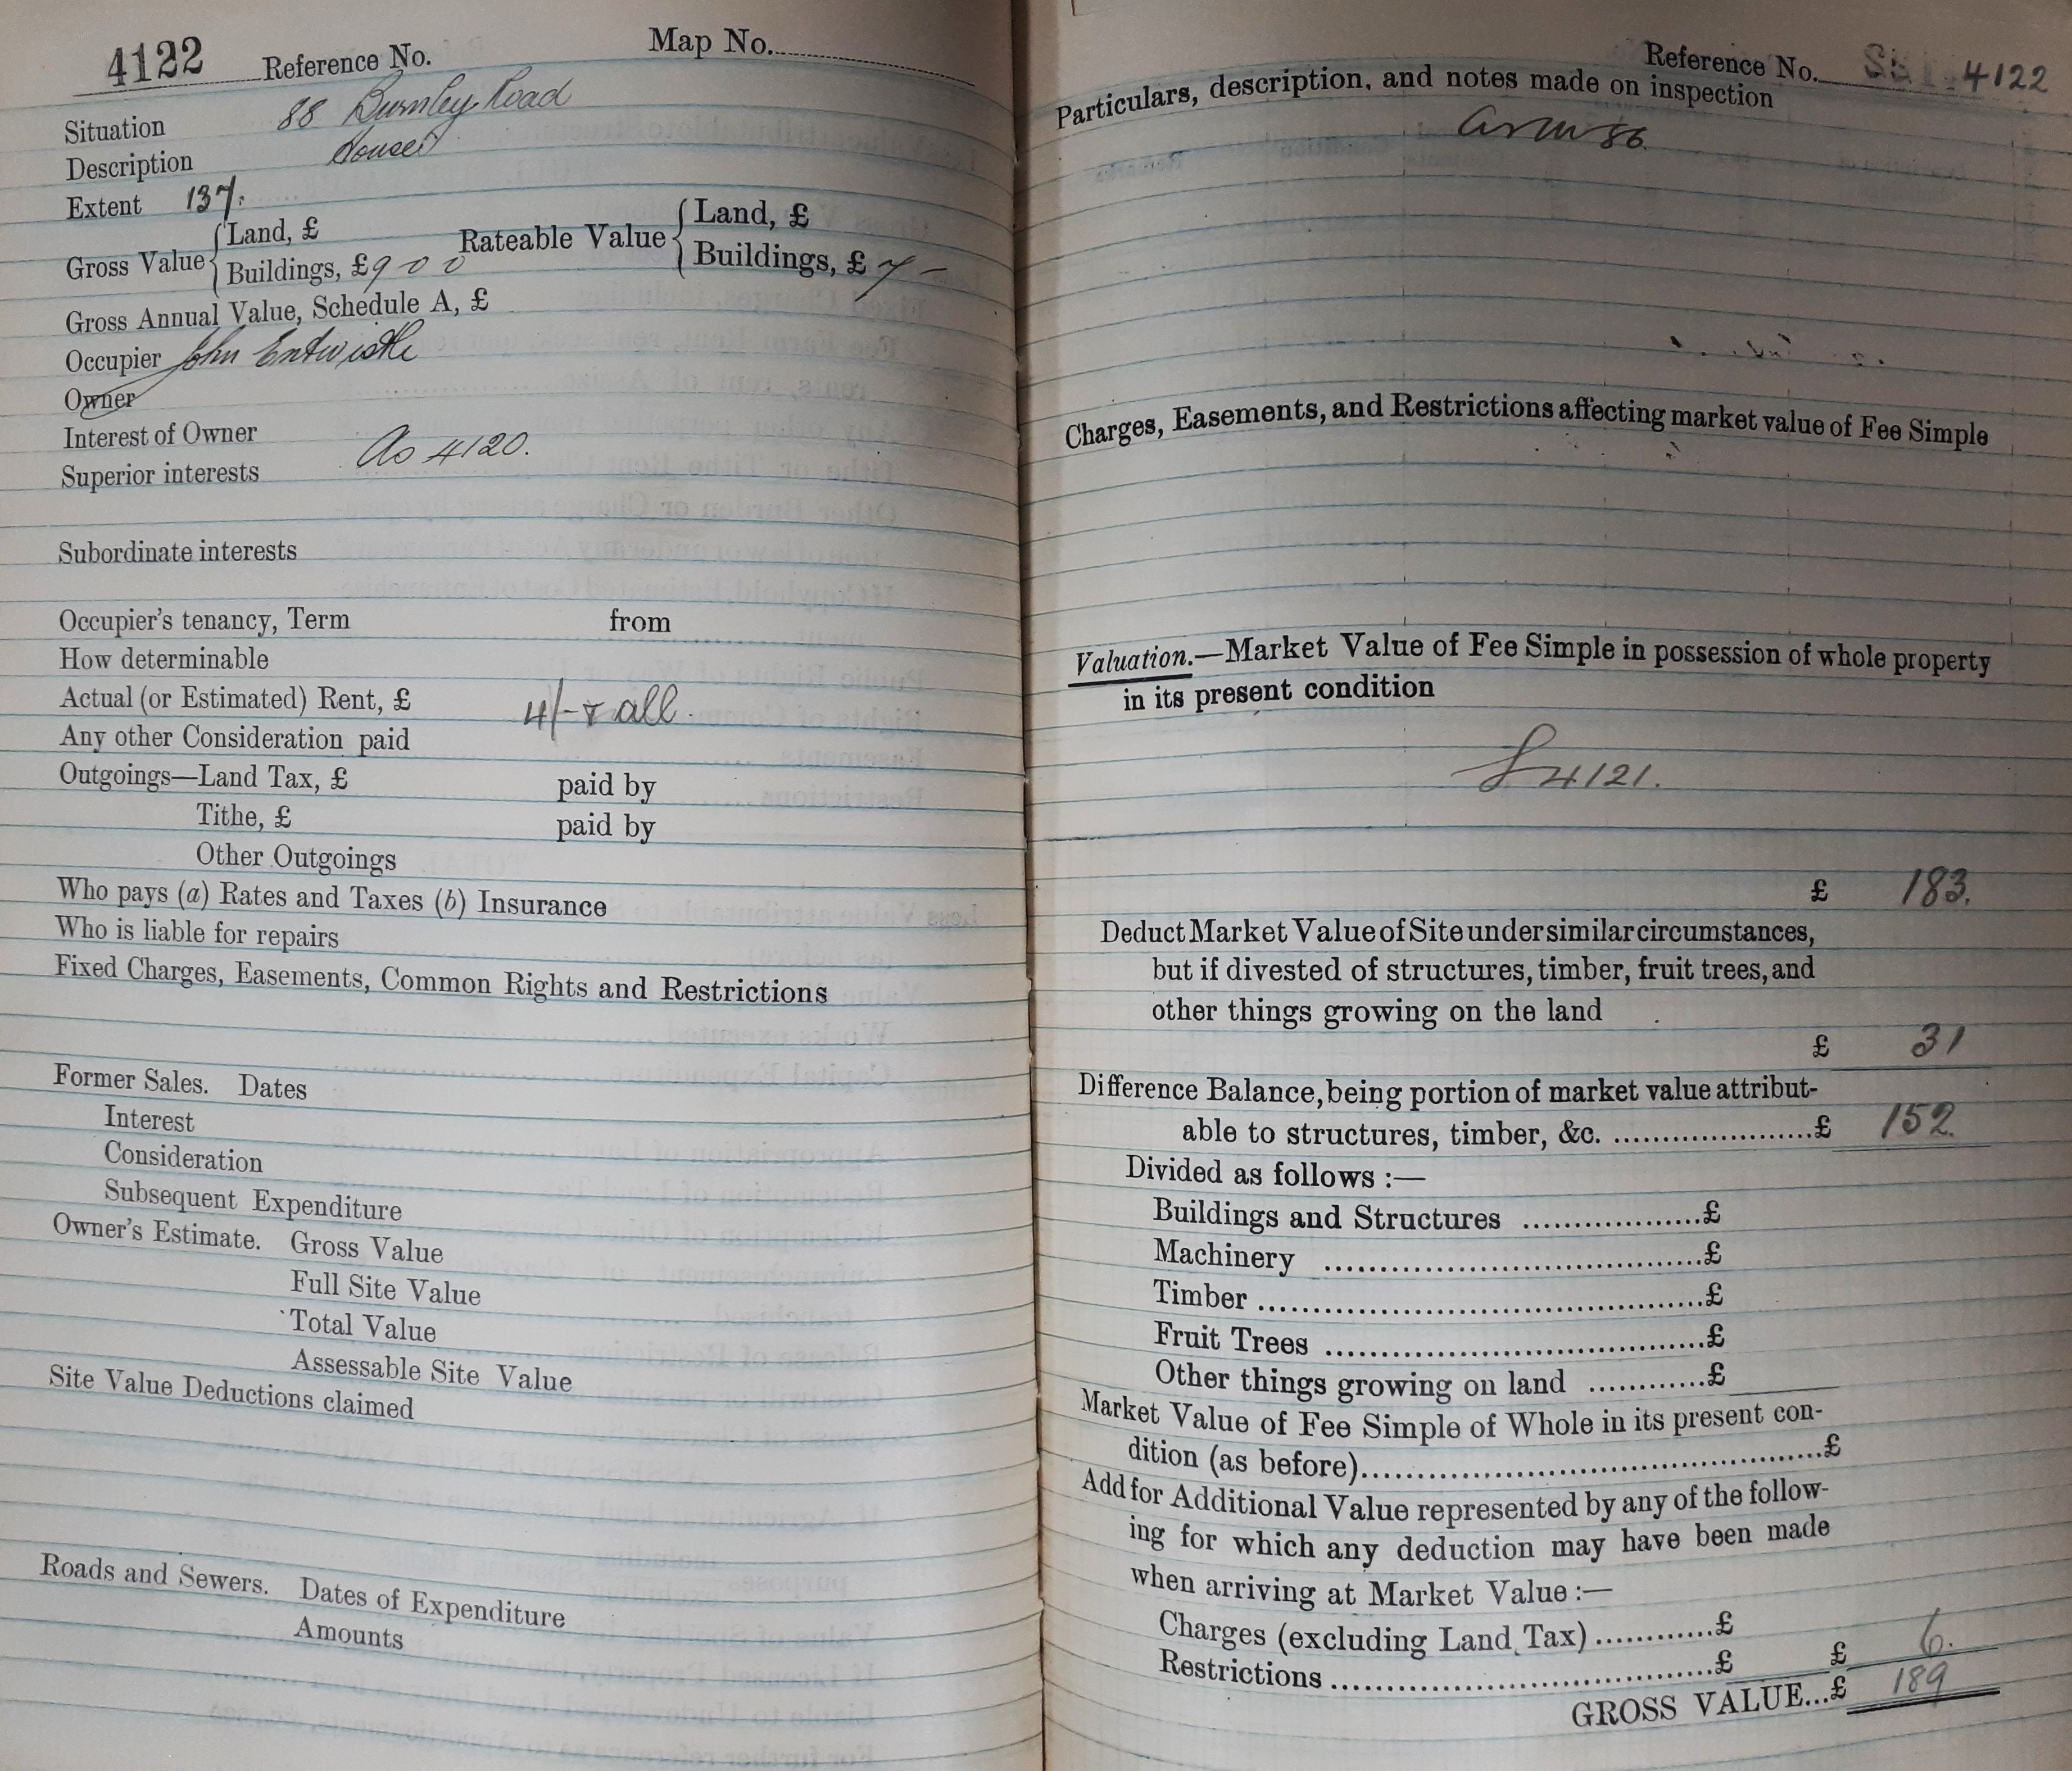 4122 Reference No. Map No.
Situation 88 Burnley Road
Description House
Extent 137.
Gross Value { Land, £
Buildings, £ 9 0 0
Rateable Value { Land, £
Buildings, £ 7 -
Gross Annual Value, Schedule A, £
Occupier John Entwistle
Owner
Interest of Owner
Superior interests As 4120.
Subordinate interests
Occupier's tenancy, Term from
How determinable
Actual (or Estimated) Rent, £ 4/- & all.
Any other Consideration paid
Outgoings—Land Tax, £ paid by
Tithe, £ paid by
Other Outgoings
Who pays (a) Rates and Taxes (b) Insurance
Who is liable for repairs
Fixed Charges, Easements, Common Rights and Restrictions
Former Sales. Dates
Interest
Consideration
Subsequent Expenditure
Owner's Estimate. Gross Value
Full Site Value
Total Value
Assessable Site Value
Site Value Deductions claimed
Roads and Sewers. Dates of Expenditure
Amounts
Reference No. 4122
Particulars, description, and notes made on inspection
86.
Charges, Easements, and Restrictions affecting market value of Fee Simple
Valuation.—Market Value of Fee Simple in possession of whole property
in its present condition
4121.
£ 183.
Deduct Market Value of Site under similar circumstances,
but if divested of structures, timber, fruit trees, and
other things growing on the land
£ 31
Difference Balance, being portion of market value attribut-
able to structures, timber, &c. ......................£ 152.
Divided as follows :—
Buildings and Structures ...................£
Machinery ......................................£
Timber .............................................£
Fruit Trees ......................................£
Other things growing on land ............£
Market Value of Fee Simple of Whole in its present con-
dition (as before)..............................................£
Add for Additional Value represented by any of the follow-
ing for which any deduction may have been made
when arriving at Market Value :—
Charges (excluding Land Tax) ............£
Restrictions ......................................£ £ 6.
GROSS VALUE...£ 189